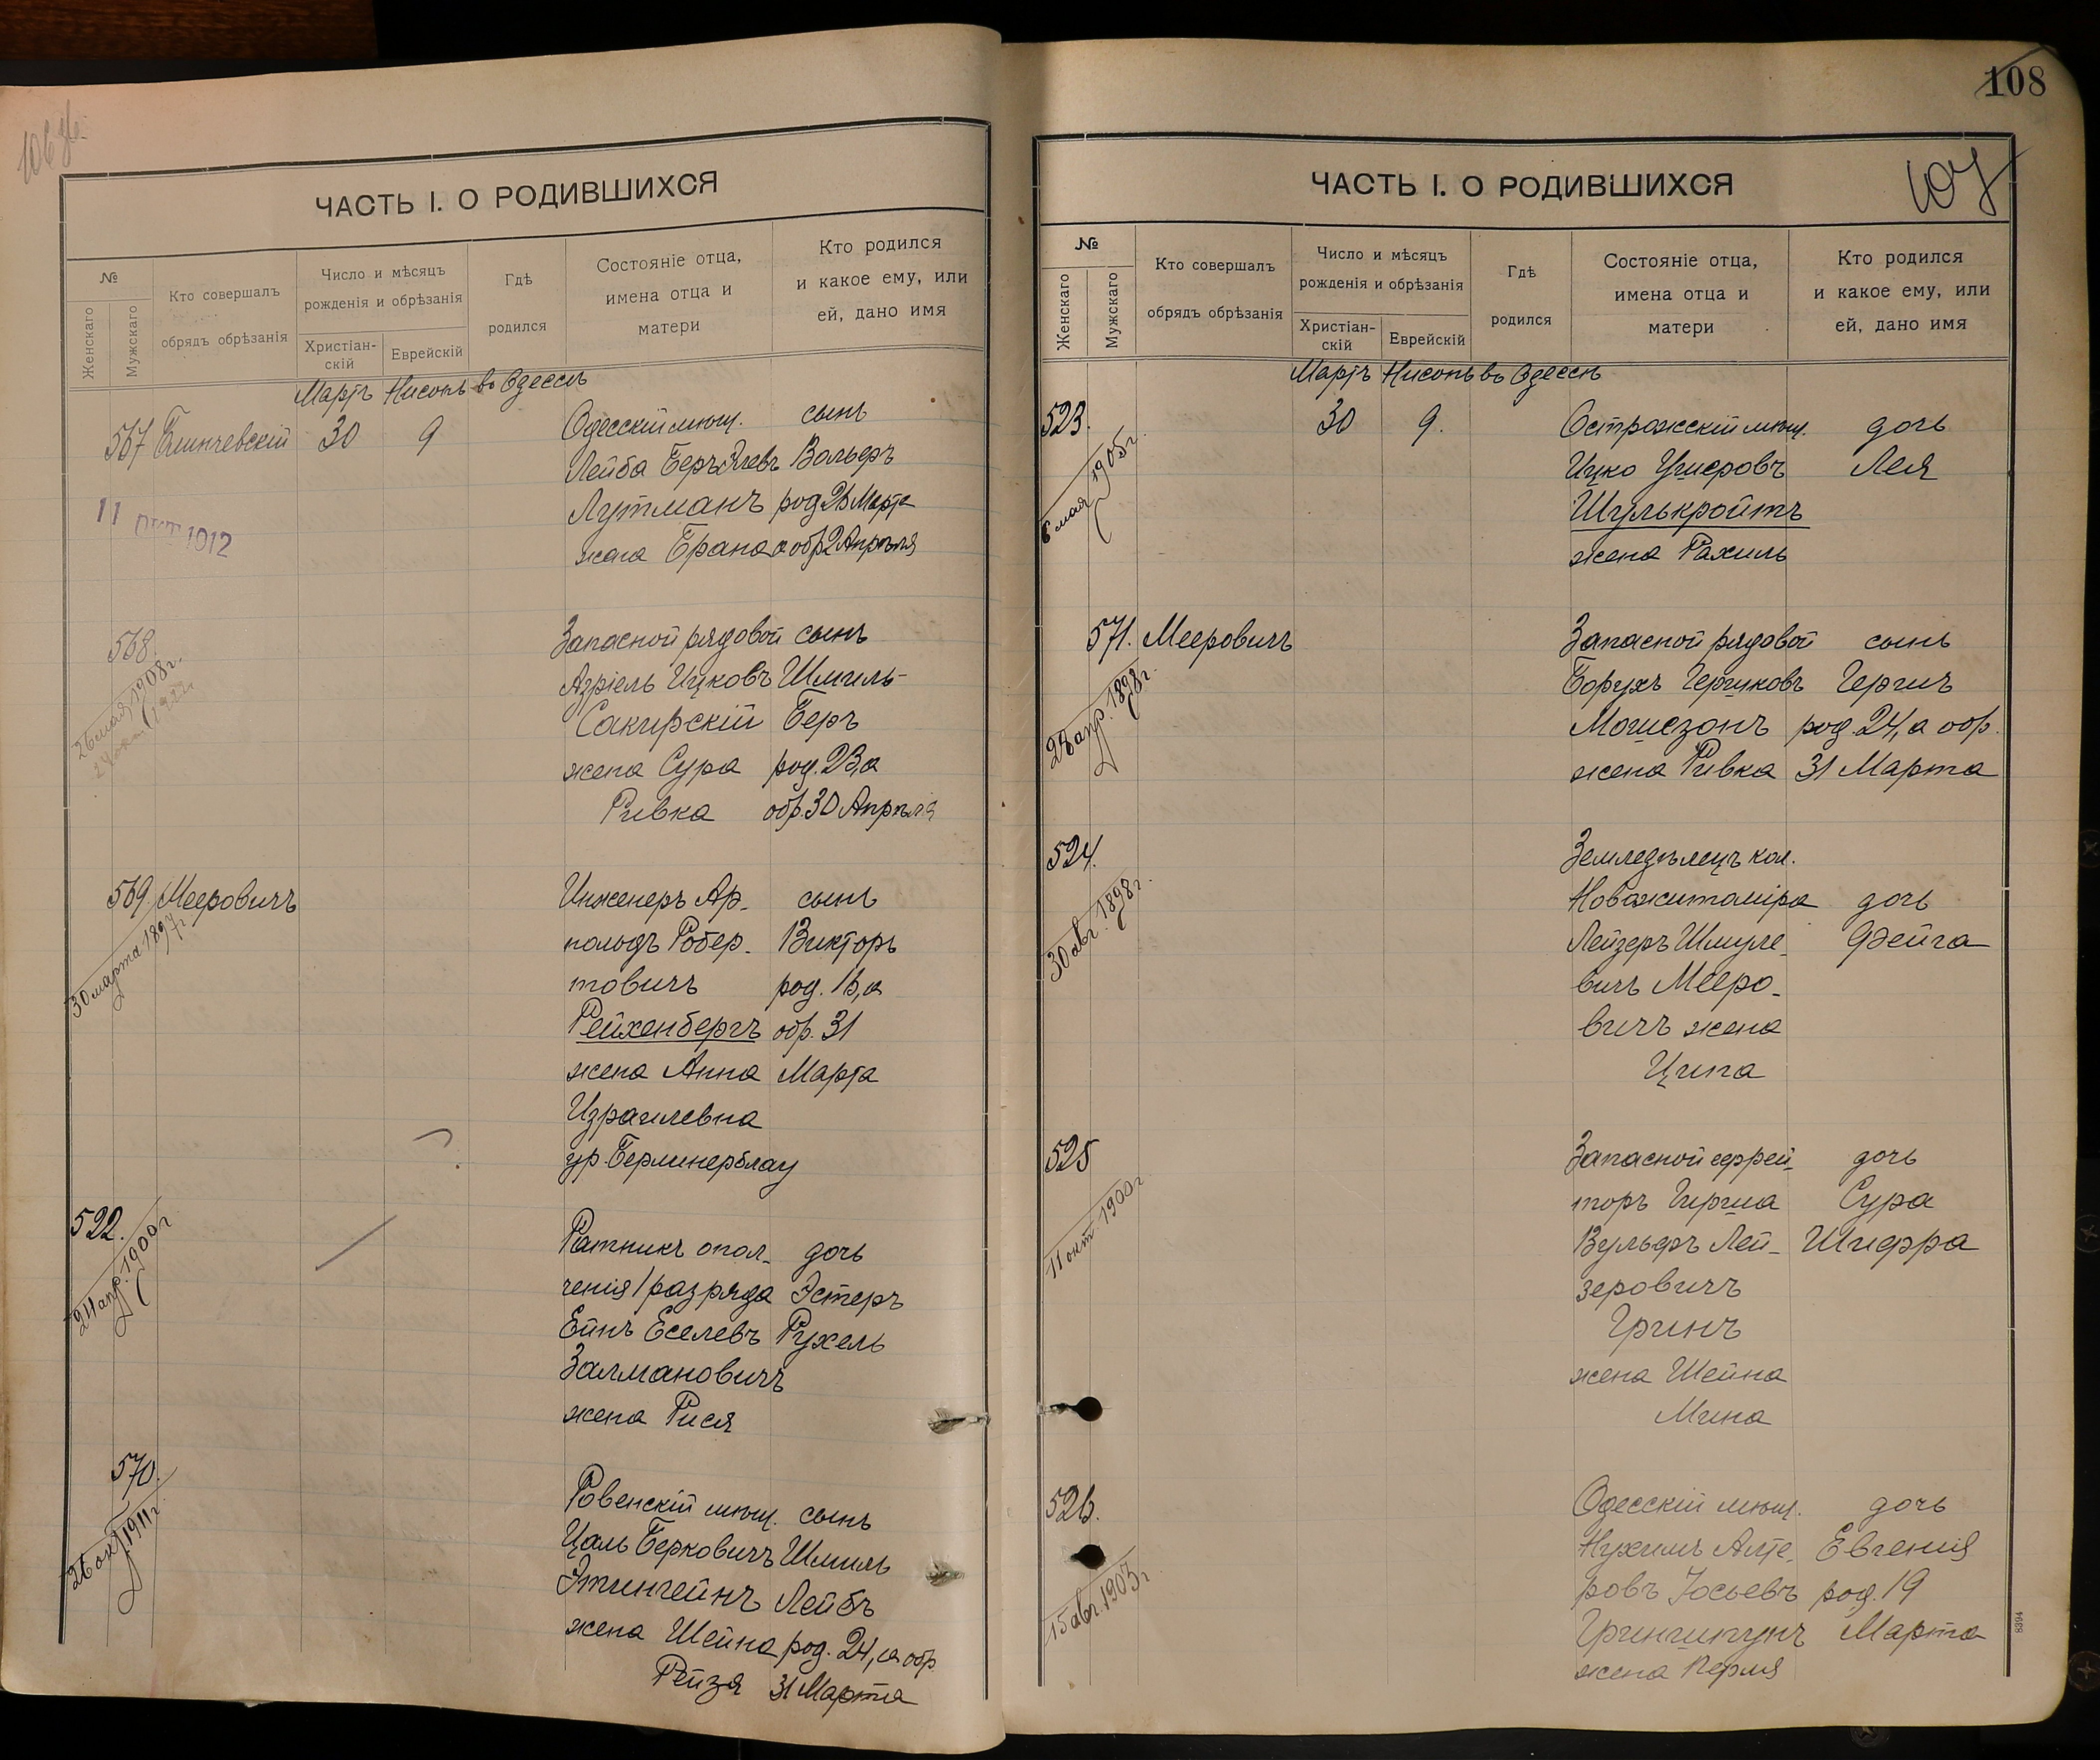 106 об.
ЧАСТЬ I. О РОДИВШИХСЯ
№
Женскаго
Мужскаго
Кто совершалъ
обрядъ обрѣзанія
Число и мѣсяцъ
рожденія и обрѣзанія
Христіан-
скій
Еврейскій
Гдѣ
родился
Состояніе отца,
имена отца и
матери
Кто родился
и какое ему, или
ей, дано имя
Мартъ Нисонъ въ Одессѣ
567 30 9 Одесскій мѣщ. сынъ
Лейба Беръ Вольфъ
Лутманъ род. 26 Марта
жена Брана а обр. 2 Апрѣля
11 ОКТ 1912
568. Запасной рядовой сынъ
26 мая 1908 г.
Азріель Ицковъ Шмиль-
Сакирскій Беръ
жена Сура род. 23, а
Ривка обр. 30 Апрѣля
569. Мееровичъ Инженеръ Ар- сынъ
30 марта 1897 г.
нольдъ Робер- Викторъ
товичъ род. 16, а
Рейхенбергъ обр. 31
жена Анна Марта
Израилевна
ур. Берлинерблау
522. Ратникъ опол- дочь
24 апр. 1900 г.
ченія 1 разряда Эстеръ
Ейнъ Еселевъ Рухель
Залмановичъ
жена Рися
570. Ровенскій мѣщ. сынъ
26 окт 1911 г.
Цаль Берковичъ Шмиль
Этингейнъ Лейбъ
жена Шейна род. 24, а обр.
Рейзя 31 Марта
108
107
ЧАСТЬ I. О РОДИВШИХСЯ
№
Женскаго
Мужскаго
Кто совершалъ
обрядъ обрѣзанія
Число и мѣсяцъ
рожденія и обрѣзанія
Христіан-
скій
Еврейскій
Гдѣ
родился
Состояніе отца,
имена отца и
матери
Кто родился
и какое ему, или
ей, дано имя
Мартъ Нисонъ въ Одессѣ
523. 30 9. Острожскій мѣщ. дочь
6 мая 1905 г.
Ицко Ушеровъ Лея
Шулькройтъ
жена Рахиль
571. Мееровичъ Запасной рядовой сынъ
28 апр. 1898 г.
Борухъ Гершковъ Гершъ
Мошезонъ род. 24, а обр.
жена Ривка 31 Марта
524. Земледѣлецъ кол.
30 авг. 1898 г.
Новожитоміра дочь
Лейзеръ Шмуле- Фейга
вичъ Мееро-
вичъ жена
Ципа
525 Запасной ефрей- дочь
11 окт 1900 г.
торъ Гирша Сура
Вульфъ Лей- Шифра
зеровичъ
Гринъ
жена Шейна
Мина
526. Одесскій мѣщ. дочь
15 авг. 1903 г.
Нухимъ Алте- Евгенія
ровъ Іосьевъ род. 19
Гриншпунъ Марта
жена Перля
8394